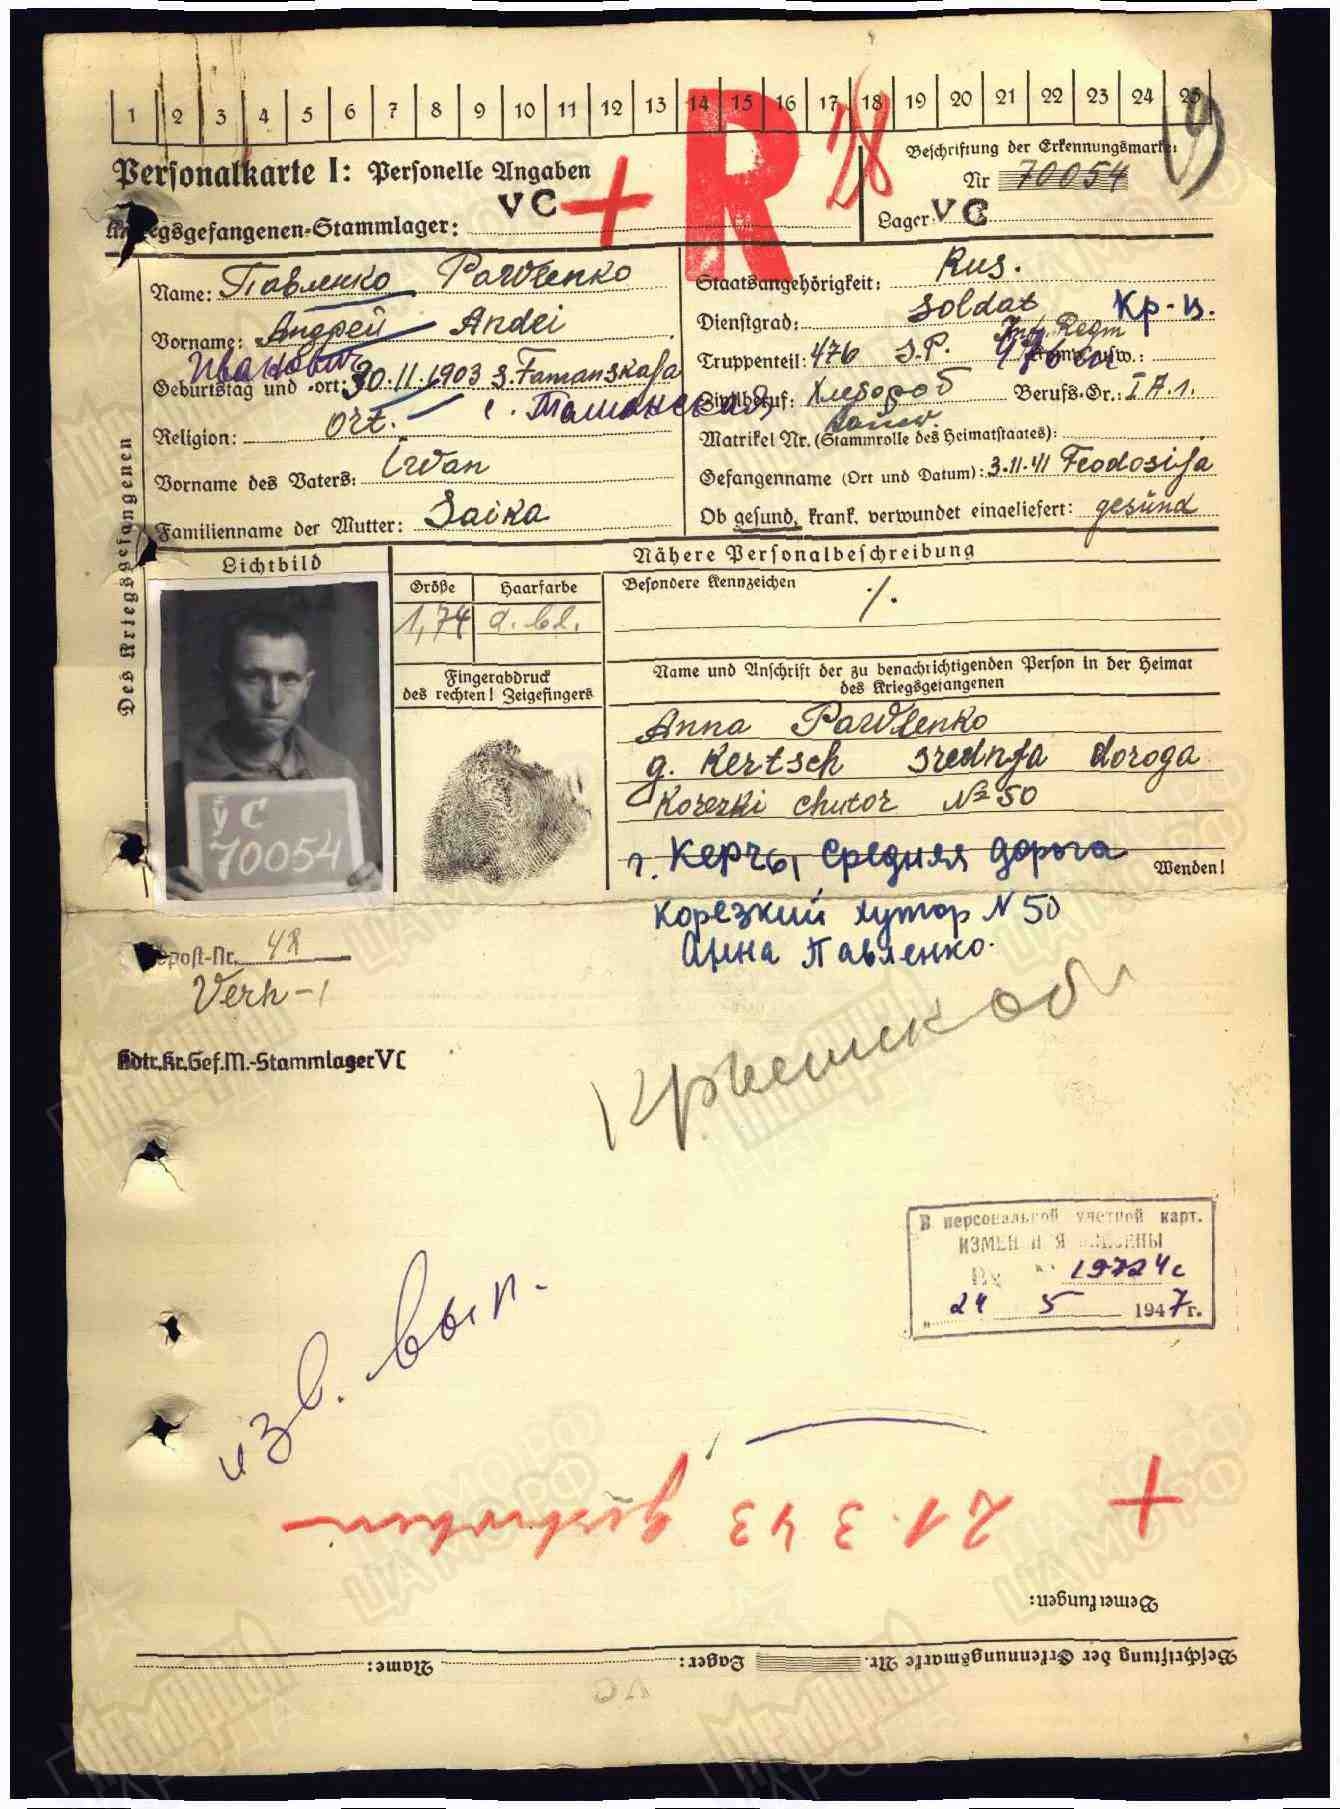 1 2 3 4 5 6 7 8 9 10 11 12 13 14 15 16 17 18 19 20 21 22 23 24 25
Personalkarte I: Personelle Angaben
Kriegsgefangenen-Stammlager: VC
+ R 28
Beschriftung der Erkennungsmarke:
Nr 70054
Lager: VC
Des Kriegsgefangenen
Name: Павленко Pawlenko
Vorname: Андрей Andei
Иванович
Geburtstag und -ort: 30.11.1903 s. Tamanskaja
с. Таманская
Religion: ort.
Vorname des Vaters: Iwan
Familienname der Mutter: Saika
Staatsangehörigkeit: Rus.
Dienstgrad: Soldat Кр-ц.
Truppenteil: 476 J.P. Inf. Regm Komp. usw.:
Zivilberuf: Хлебороб Berufs-Gr.: I A.1.
Matrikel Nr. (Stammrolle des Heimatstaates):
Gefangennahme (Ort und Datum): 3.11.41 Feodosija
Ob gesund, krank, verwundet eingeliefert: gesund
Lichtbild
VC
70054
Größe
1,74
Haarfarbe
d. bl.
Fingerabdruck
des rechten! Zeigefingers
Nähere Personalbeschreibung
Besondere Kennzeichen
Name und Anschrift der zu benachrichtigenden Person in der Heimat
des Kriegsgefangenen
Anna Pawlenko
g. Kertsch srednja doroga
Korezki chutor № 50
Wenden!
г. Керчь, Средняя дорога
Корезкий хутор N 50
Анна Павленко.
post-Nr. 48
Verh-1
Kdtr. Kr. Gef. M.-Stammlager VC
В персональной учетной карт.
ИЗМЕНЕНИЯ ВНЕСЕНЫ
19724с
24 5 1947г.
изв. вып.
+ 21.3 43 gestorben
Bemerkungen:
Beschriftung der Erkennungsmarke Nr. Lager: Name:
VC